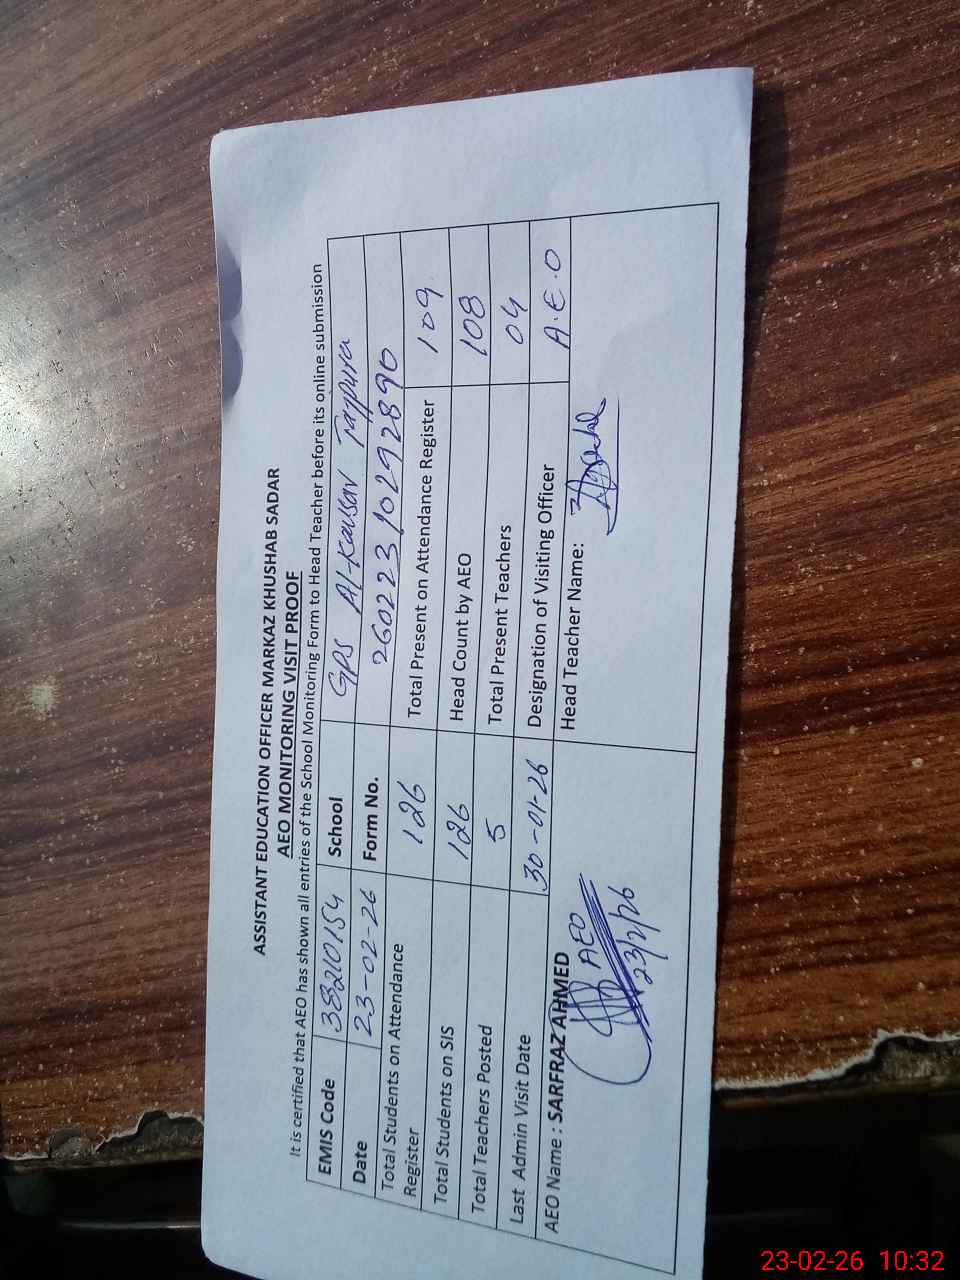 ASSISTANT EDUCATION OFFICER MARKAZ KHUSHAB SADAR
AEO MONITORING VISIT PROOF
It is certified that AEO has shown all entries of the School Monitoring Form to Head Teacher before its online submission
EMIS Code 38210154 School GPS Al-Kausar Tajpura
Date 23-02-26 Form No. 2602231029 2890
Total Students on Attendance Register 126 Total Present on Attendance Register 109
Total Students on SIS 126 Head Count by AEO 108
Total Teachers Posted 5 Total Present Teachers 04
Last Admin Visit Date 30-01-26 Designation of Visiting Officer A.E.O
AEO Name : SARFRAZ AHMED Head Teacher Name:
AEO
23/2/26
23-02-26 10:32